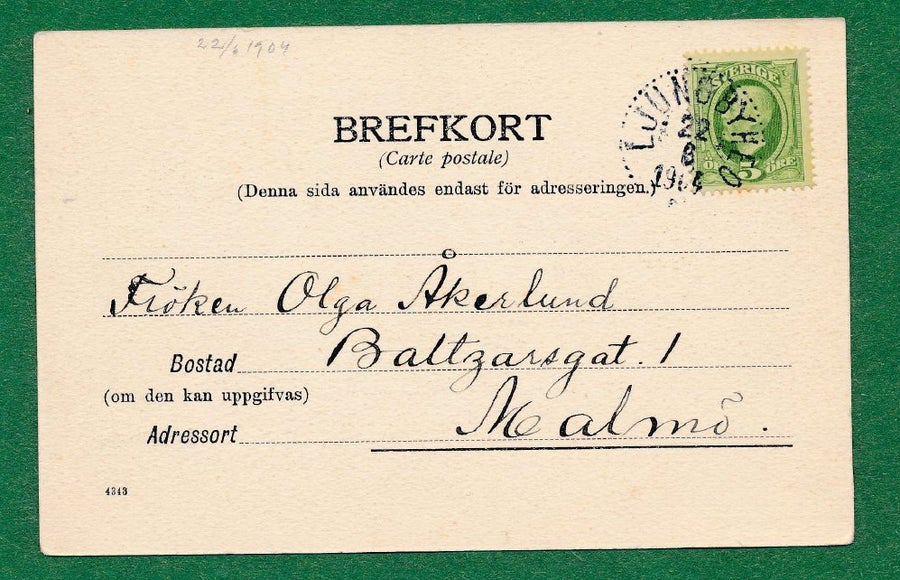 22/6 1904
BREFKORT
(Carte postale)
(Denna sida användes endast för adresseringen.)
SVERIGE
5 ÖRE
LJUNGBYHED
22
6
1904
Fröken Olga Åkerlund
Bostad Baltzarsgat. 1
(om den kan uppgifvas)
Adressort Malmö.
4343